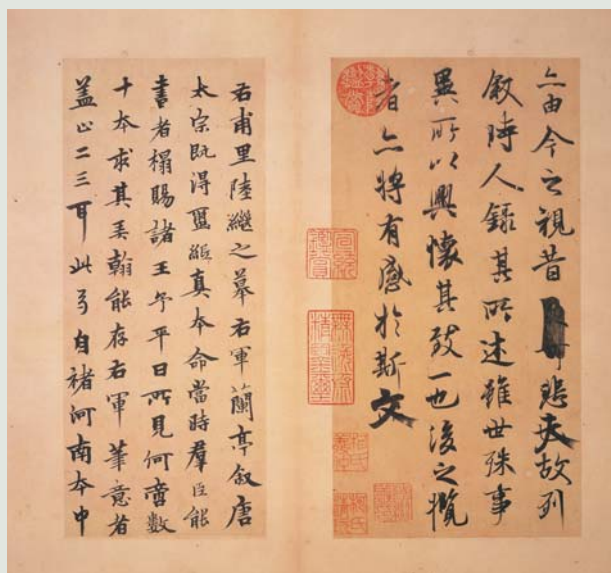 亦由今之視昔悲夫故列
叙時人錄其所述雖世殊事
異所以興懷其致一也後之攬
者亦將有感於斯文
右甫里陸繼之摹右軍蘭亭叙唐
太宗既得蠒紙真本命當時羣臣能
書者搨賜諸王予平日所見何啻數
十本求其弄翰能存右軍筆意者
蓋止二三耳此自褚河南本中